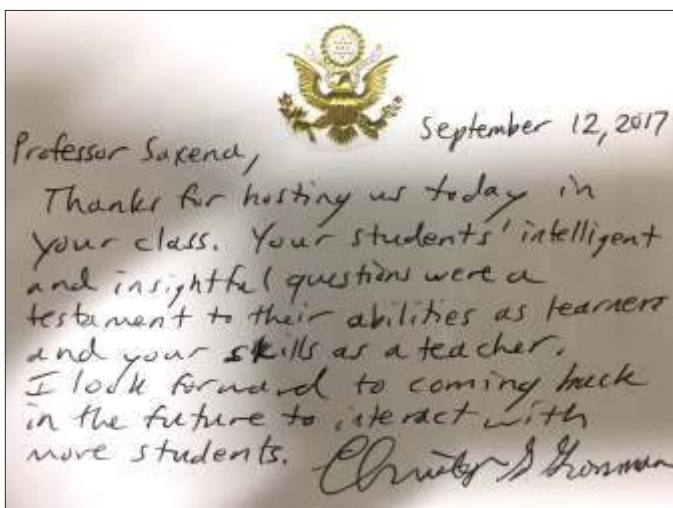 September 12, 2017
Professor Saxena,
Thanks for hosting us today in
your class. Your students' intelligent
and insightful questions were a
testament to their abilities as learners
and your skills as a teacher.
I look forward to coming back
in the future to interact with
more students.